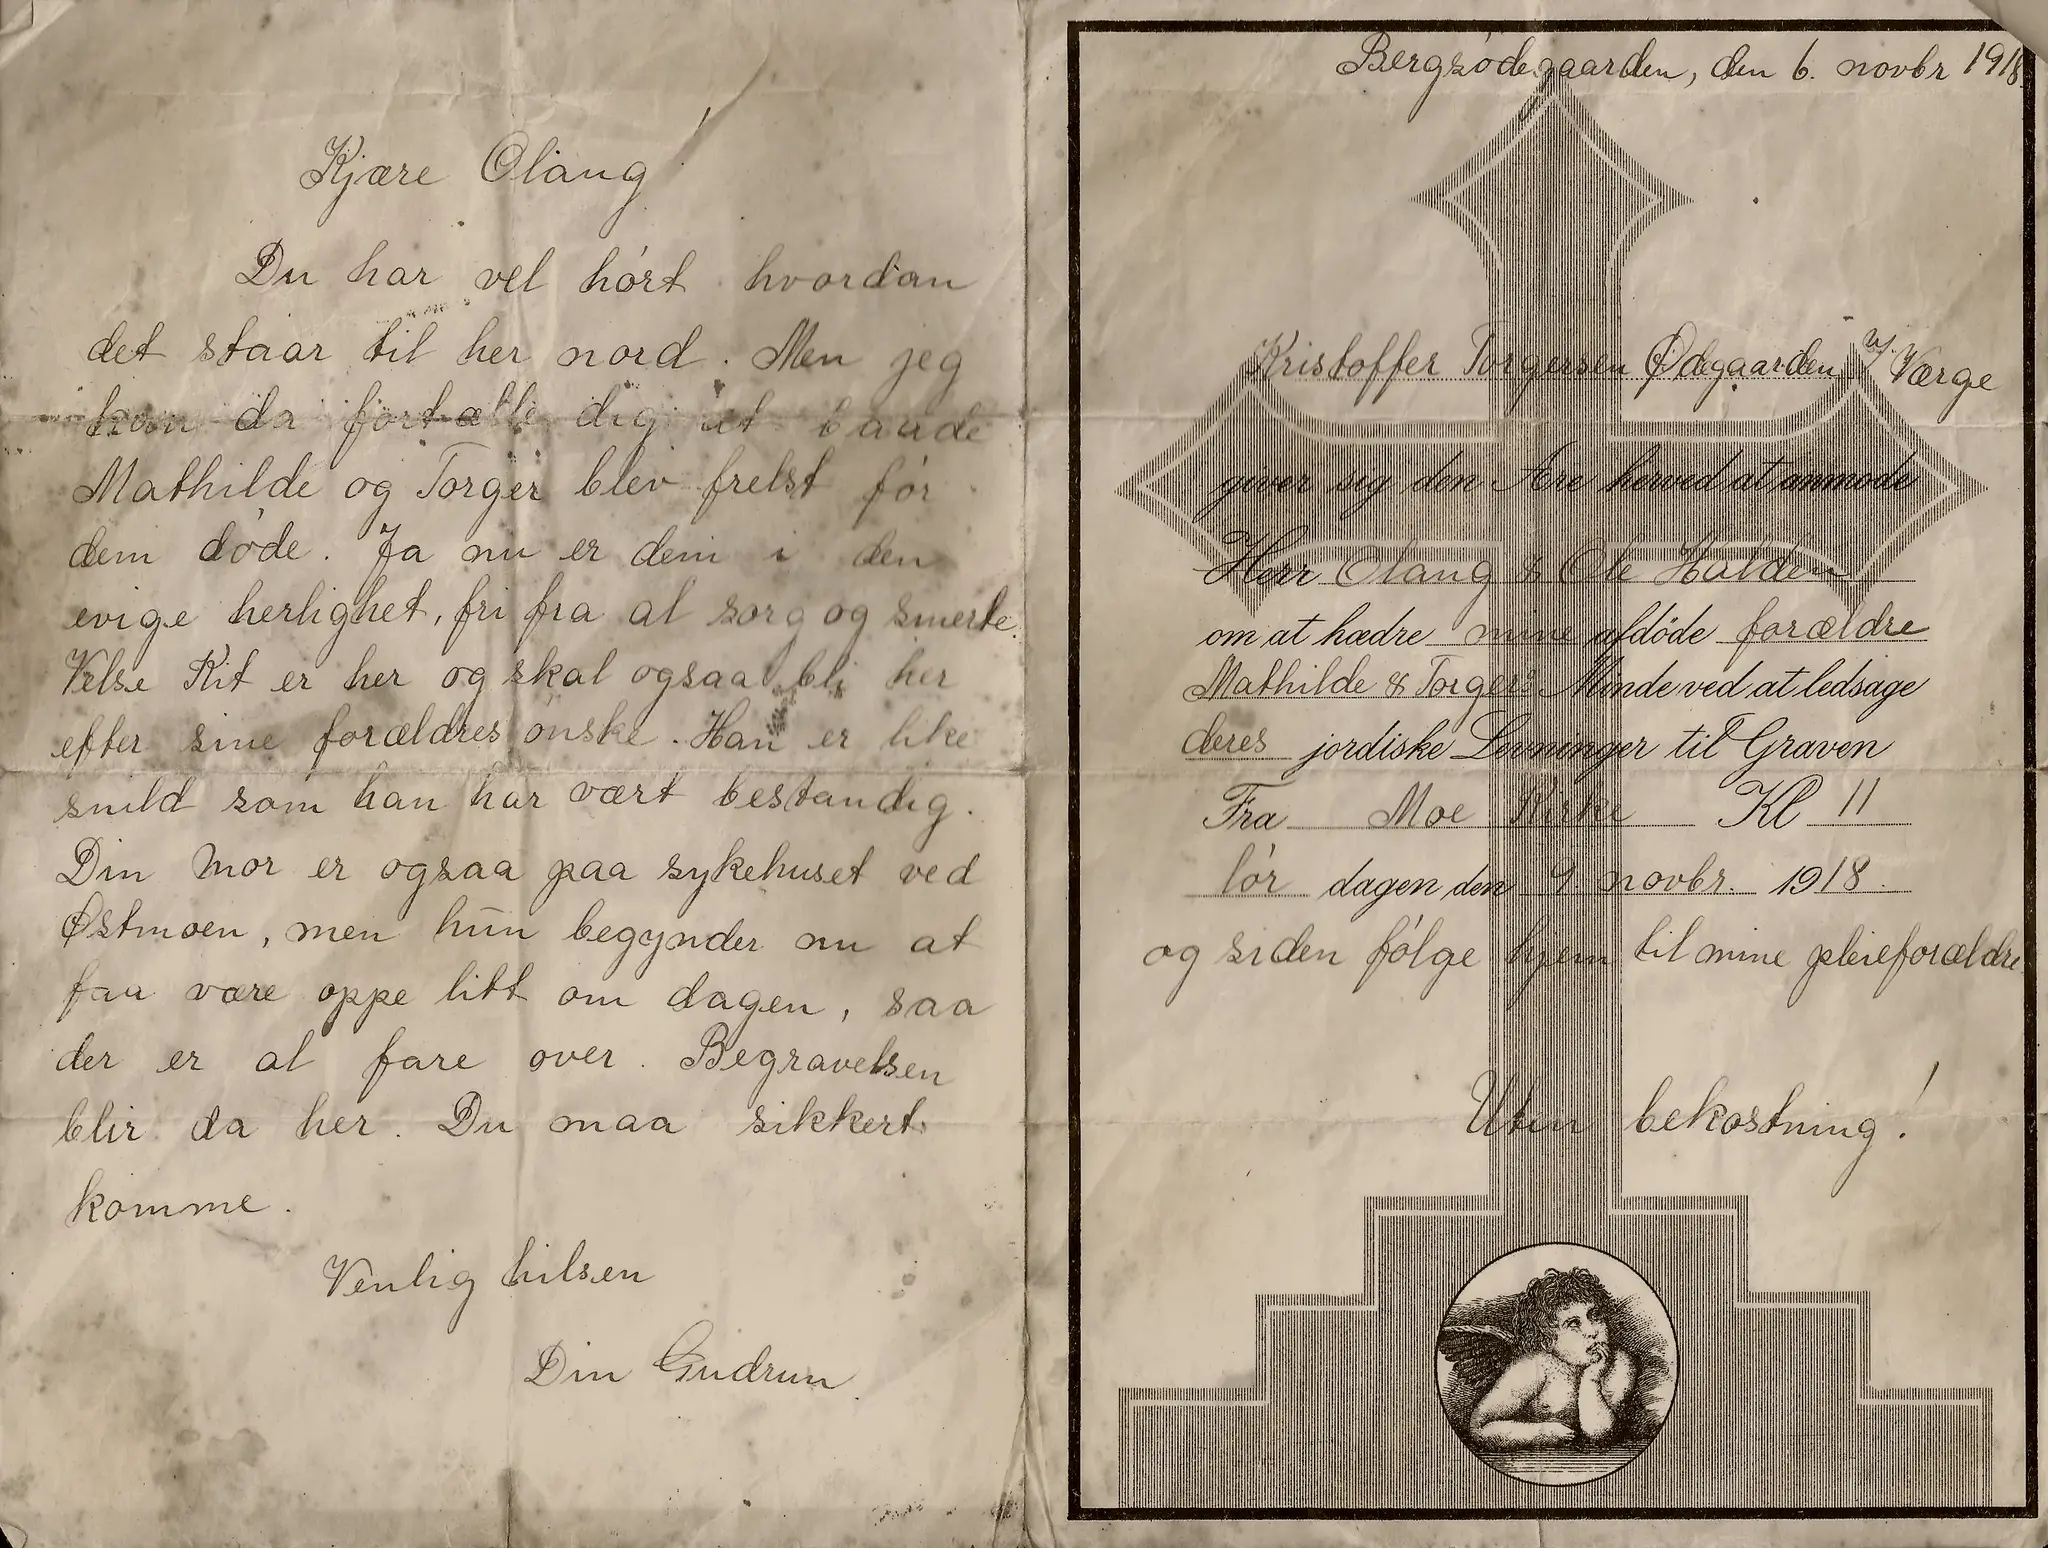 Kjære Olaug!
Du har vel hørt hvordan
det staar til her nord. Men jeg
kan da fortælle dig at baade
Mathilde og Torger blev frelst før
dem døde. Ja nu er dem i den
evige herlighet, fri fra al sorg og smerte.
Vesle Kit er her og skal ogsaa bli her
efter sine forældres ønske. Han er like
snild som han har vært bestandig.
Din mor er ogsaa paa sykehuset ved
Østmoen, men hun begynder nu at
faa være oppe litt om dagen, saa
der er al fare over. Begravelsen
blir da her. Du maa sikkert
komme.
Venlig hilsen
Din Gudrun.
Bergsødegaarden, den 6. novbr 1918.
Kristoffer Torgersen Ødegaarden, Værge
giver sig den Ære herved at anmode
Herr Olaug & Ole Halden
om at hædre mine afdøde forældre
Mathilde & Torgers Minde ved at ledsage
deres jordiske Levninger til Graven
Fra Moe Kirke Kl 11
lør dagen den 9. novbr. 1918.
og siden følge hjem til mine pleieforældre.
Uten bekostning!